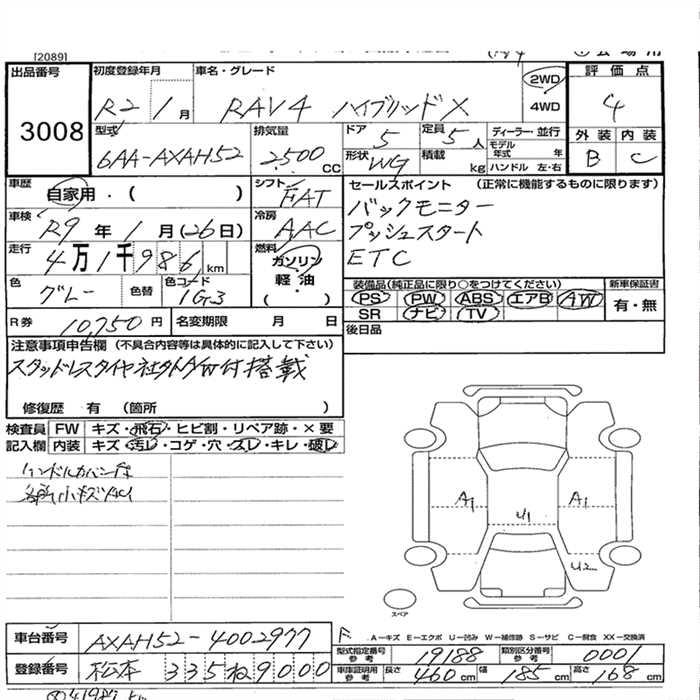 [2089]
出品番号 3008
初度登録年月 R2 / 1月
車名・グレード RAV4 ハイブリッドX
2WD 4WD
評価点 4
型式 6AA-AXAH52
排気量 2500 CC
ドア 5 定員 5人
形状 WG 積載 kg
ディーラー・並行
モデル年式 年
ハンドル 左・右
外装 B 内装 C
車歴 自家用・( )
シフト FAT
セールスポイント (正常に機能するものに限ります)
バックモニター
プッシュスタート
ETC
車検 R9年 1月(26日)
冷房 AAC
走行 4万1千986km
燃料 ガソリン
軽油
・( )
色 グレー 色替 色コード 1G3
装備品(純正品に限り○をつけてください) 新車保証書
PS PW ABS エアB AW 有・無
SR ナビ TV
R券 10,750円 名変期限 月 日
後日品
注意事項申告欄 (不具合内容等は具体的に記入して下さい)
スタッドレスタイヤ社外AW付搭載
修復歴 有 (箇所 )
検査員 FW キズ・飛石・ヒビ割・リペア跡・×要
記入欄 内装 キズ・汚レ・コゲ・穴・スレ・キレ・破レ
A1 U1 A1
U2
スペア
A-キズ E-エクボ U-凹み W-補修跡 S-サビ C-腐食 XX-交換済
車台番号 AXAH52-4002977
型式指定番号 参考 19188 類別区分番号 参考 0001
登録番号 松本 335 ね 9000
車庫証明用 参考 長さ 460cm 幅 185cm 高さ 168cm